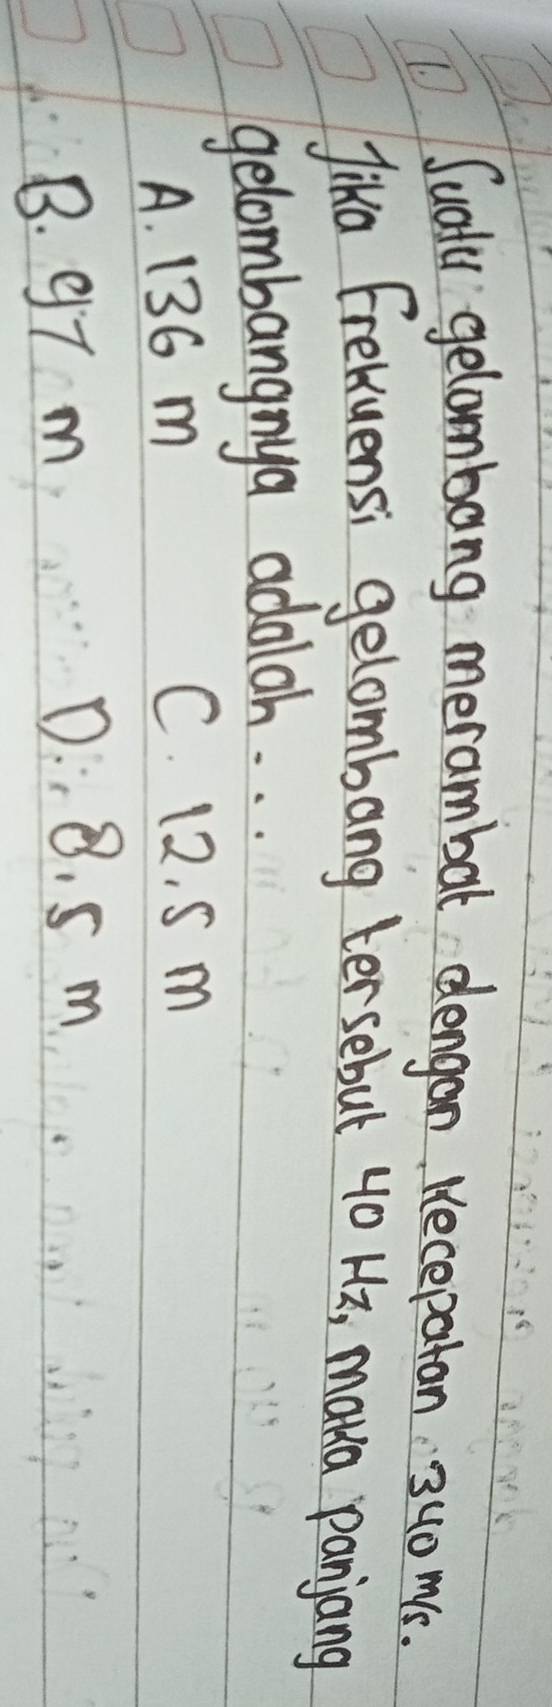 1. Suatu gelombang merambat dengan kecepatan 340 m/s.
Jika frekuensi gelombang tersebut 40 Hz, maka panjang
gelombangnya adalah....
A. 136 m C. 12,5 m
B. 97 m D. 8,5 m